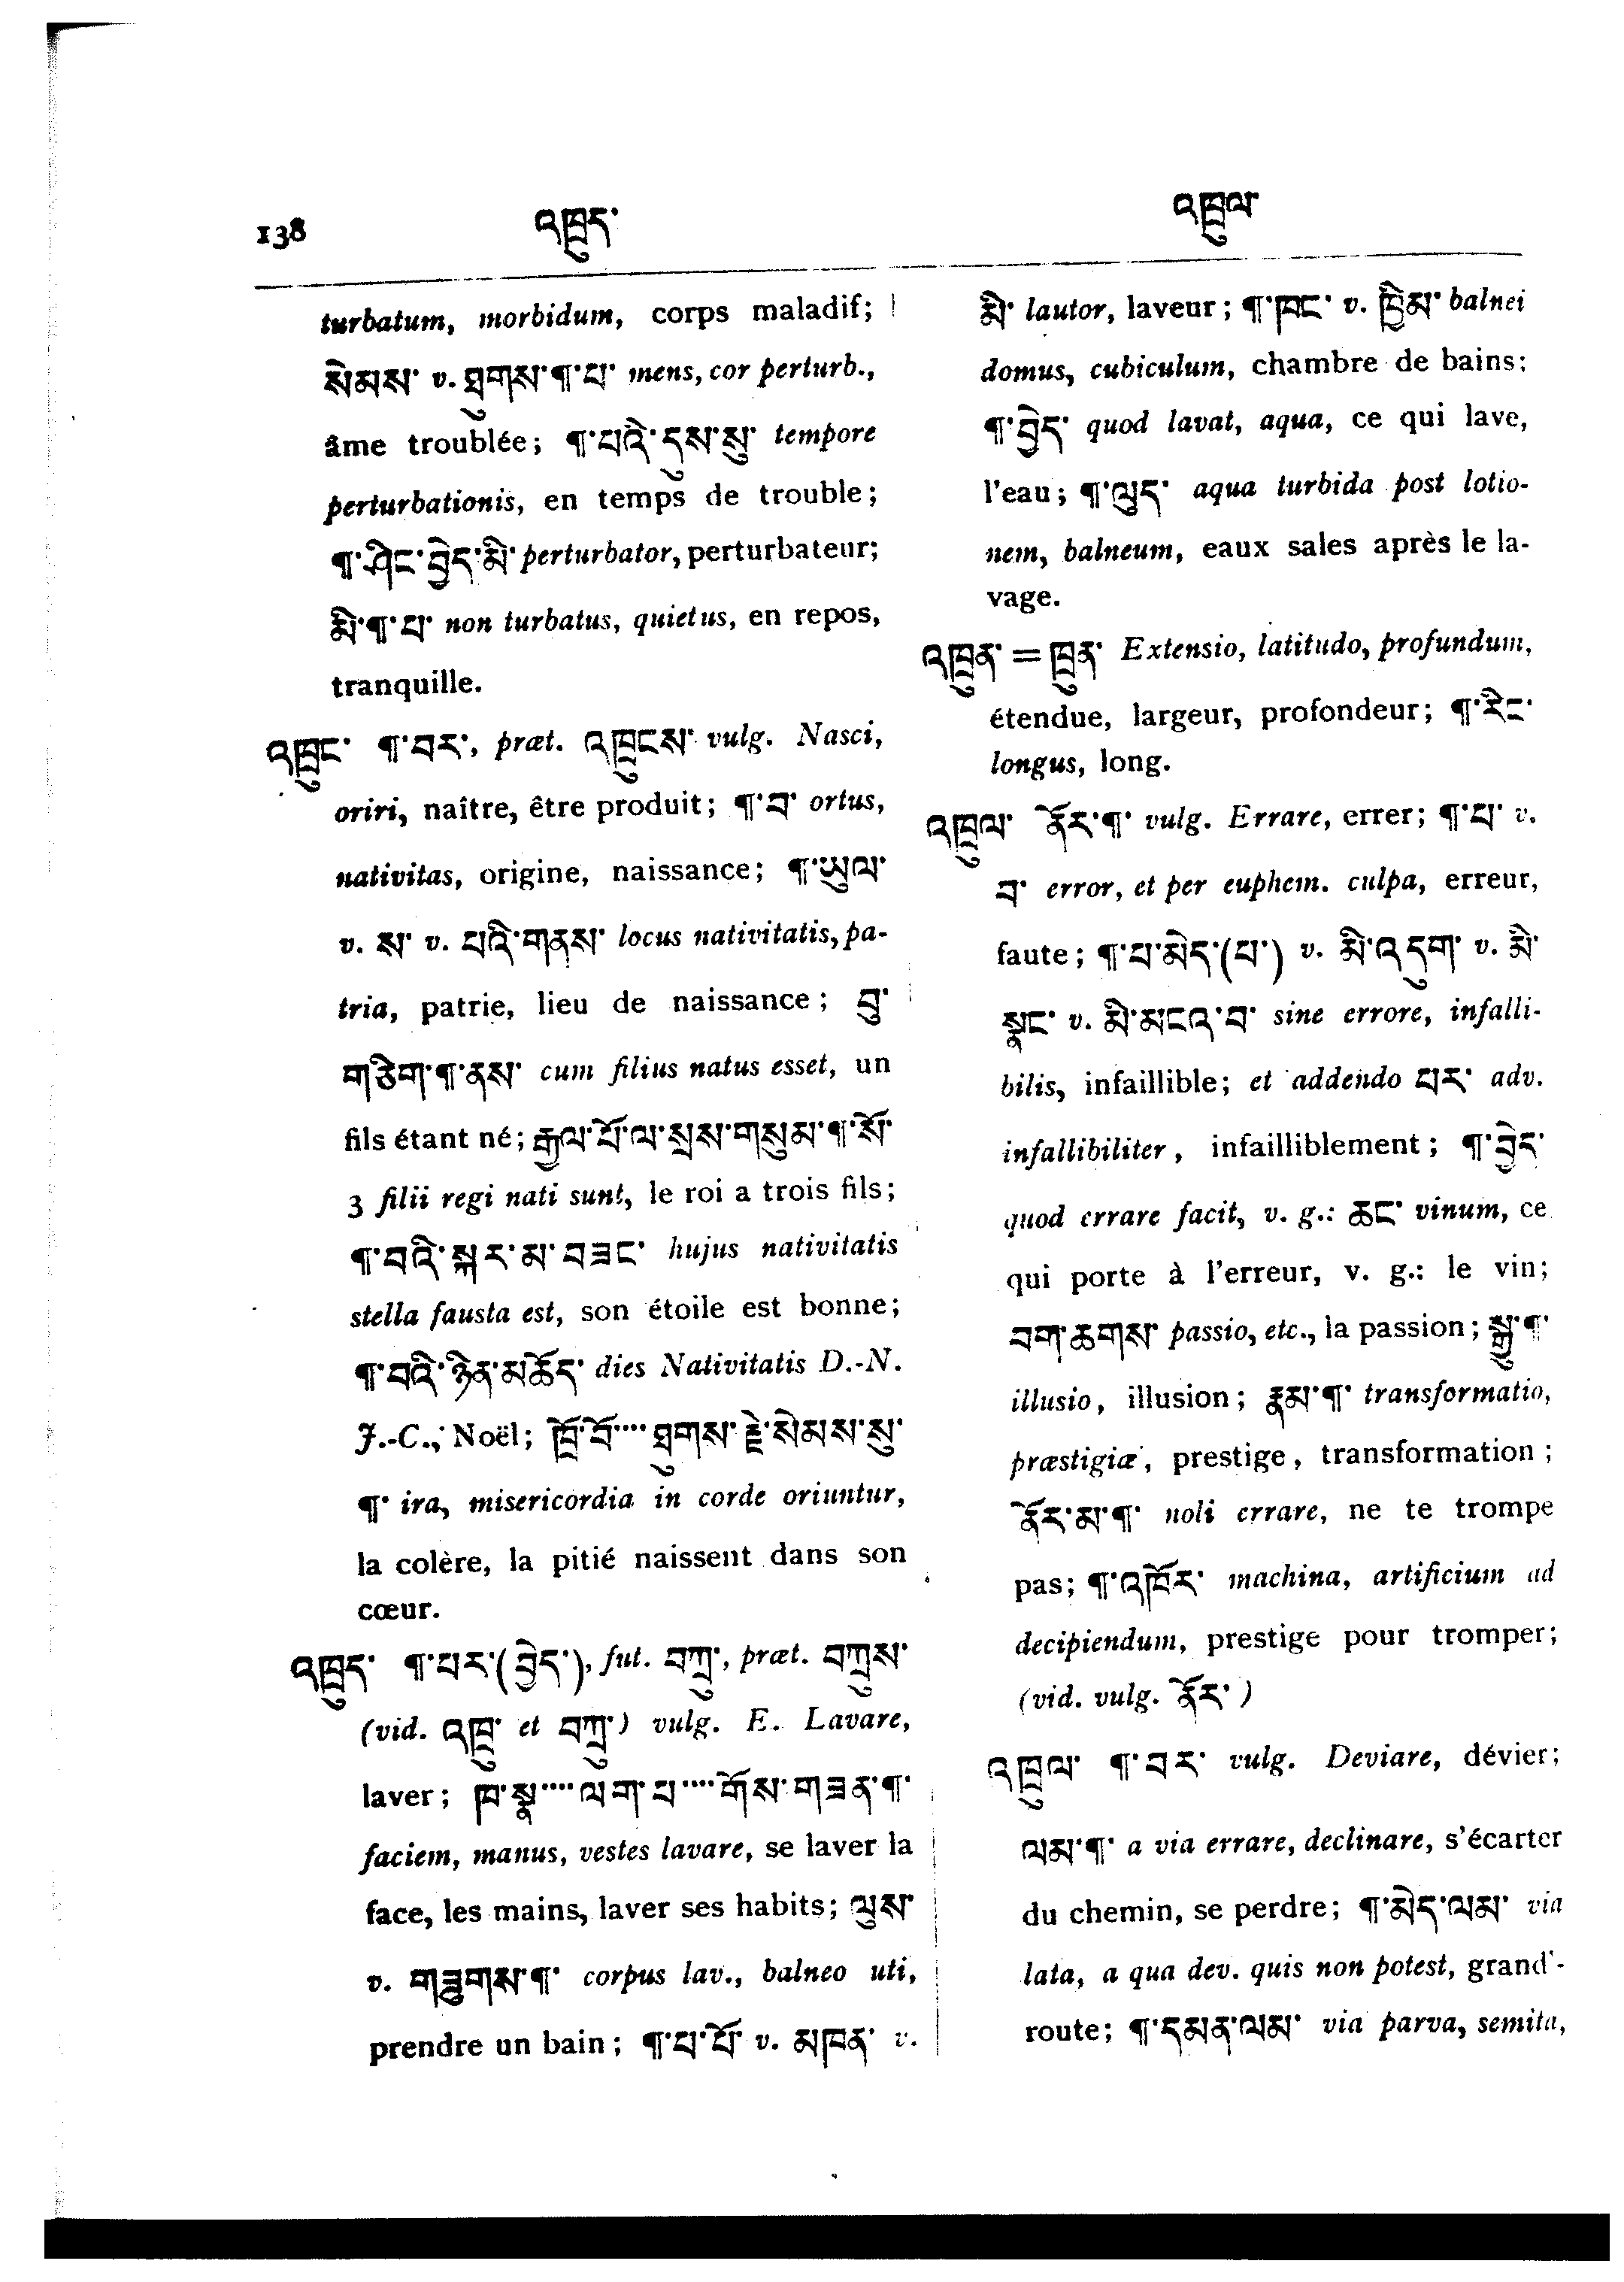 138 འཁྲུད་ འཁྲུལ་
turbatum, morbidum, corps maladif;
སེམས་ v. ཐུགས་¶་པ་ mens, cor perturb.,
âme troublée; ¶་པའི་དུས་སུ་ tempore
perturbationis, en temps de trouble;
¶་ཤིང་བྱེད་མི་ perturbator, perturbateur;
མི་¶་པ་ non turbatus, quietus, en repos,
tranquille.
འཁྲུང་ ¶་བར་, præt. འཁྲུངས་ vulg. Nasci,
oriri, naître, être produit; ¶་བ་ ortus,
nativitas, origine, naissance; ¶་ཡུལ་
v. ས་ v. པའི་གནས་ locus nativitatis, pa-
tria, patrie, lieu de naissance; བུ་
གཅིག་¶་ནས་ cum filius natus esset, un
fils étant né; རྒྱལ་པོ་ལ་སྲས་གསུམ་¶་སོ་
3 filii regi nati sunt, le roi a trois fils;
¶་བའི་སྐར་མ་བཟང་ hujus nativitatis
stella fausta est, son étoile est bonne;
¶་བའི་ཉིན་མཆོད་ dies Nativitatis D.-N.
J.-C., Noël; ཁྲོ་བོ་···· ཐུགས་རྗེ་སེམས་སུ་
¶་ ira, misericordia in corde oriuntur,
la colère, la pitié naissent dans son
cœur.
འཁྲུད་ ¶་པར་(བྱེད་), fut. བཀྲུ་, præt. བཀྲུས་
(vid. འཁྲུ་ et བཀྲུ་) vulg. E. Lavare,
laver; ཁ་སྣ་···· ལག་པ་···· གོས་གཟན་¶་
faciem, manus, vestes lavare, se laver la
face, les mains, laver ses habits; ལུས་
v. གཟུགས་¶་ corpus lav., balneo uti,
prendre un bain; ¶་པ་པོ་ v. མཁན་ v.
མི་ lautor, laveur; ¶་ཁང་ v. ཁྲིམ་ balnei
domus, cubiculum, chambre de bains;
¶་བྱེད་ quod lavat, aqua, ce qui lave,
l'eau; ¶་ལུད་ aqua turbida post lotio-
nem, balneum, eaux sales après le la-
vage.
འཁྲུན་ = ཁྲུན་ Extensio, latitudo, profundum,
étendue, largeur, profondeur; ¶་རིང་
longus, long.
འཁྲུལ་ ནོར་¶་ vulg. Errare, errer; ¶་པ་ v.
བ་ error, et per euphem. culpa, erreur,
faute; ¶་པ་མེད་(པ་) v. མི་འདུག་ v. མི་
སྣང་ v. མི་མངའ་བ་ sine errore, infalli-
bilis, infaillible; et addendo པར་ adv.
infallibiliter, infailliblement; ¶་བྱེད་
quod errare facit, v. g.: ཆང་ vinum, ce
qui porte à l'erreur, v. g.: le vin;
བག་ཆགས་ passio, etc., la passion; སྒྱུ་¶་
illusio, illusion; རྣམ་¶་ transformatio,
præstigiæ, prestige, transformation;
ནོར་མ་¶་ noli errare, ne te trompe
pas; ¶་འཁོར་ machina, artificium ad
decipiendum, prestige pour tromper;
(vid. vulg. ནོར་)
འཁྲུལ་ ¶་བར་ vulg. Deviare, dévier;
ལམ་¶་ a via errare, declinare, s'écarter
du chemin, se perdre; ¶་མེད་ལམ་ via
lata, a qua dev. quis non potest, grand'-
route; ¶་དམན་ལམ་ via parva, semita,